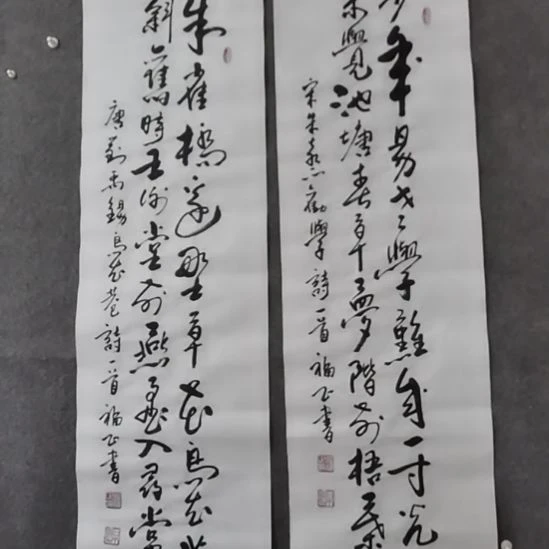 少年易老學難成一寸光
未覺池塘春草夢階前梧葉
宋朱熹勸學詩一首 福正書
朱雀橋邊野草花烏衣巷
斜舊時王謝堂前燕飛入尋常
唐劉禹錫烏衣巷詩一首 福正書